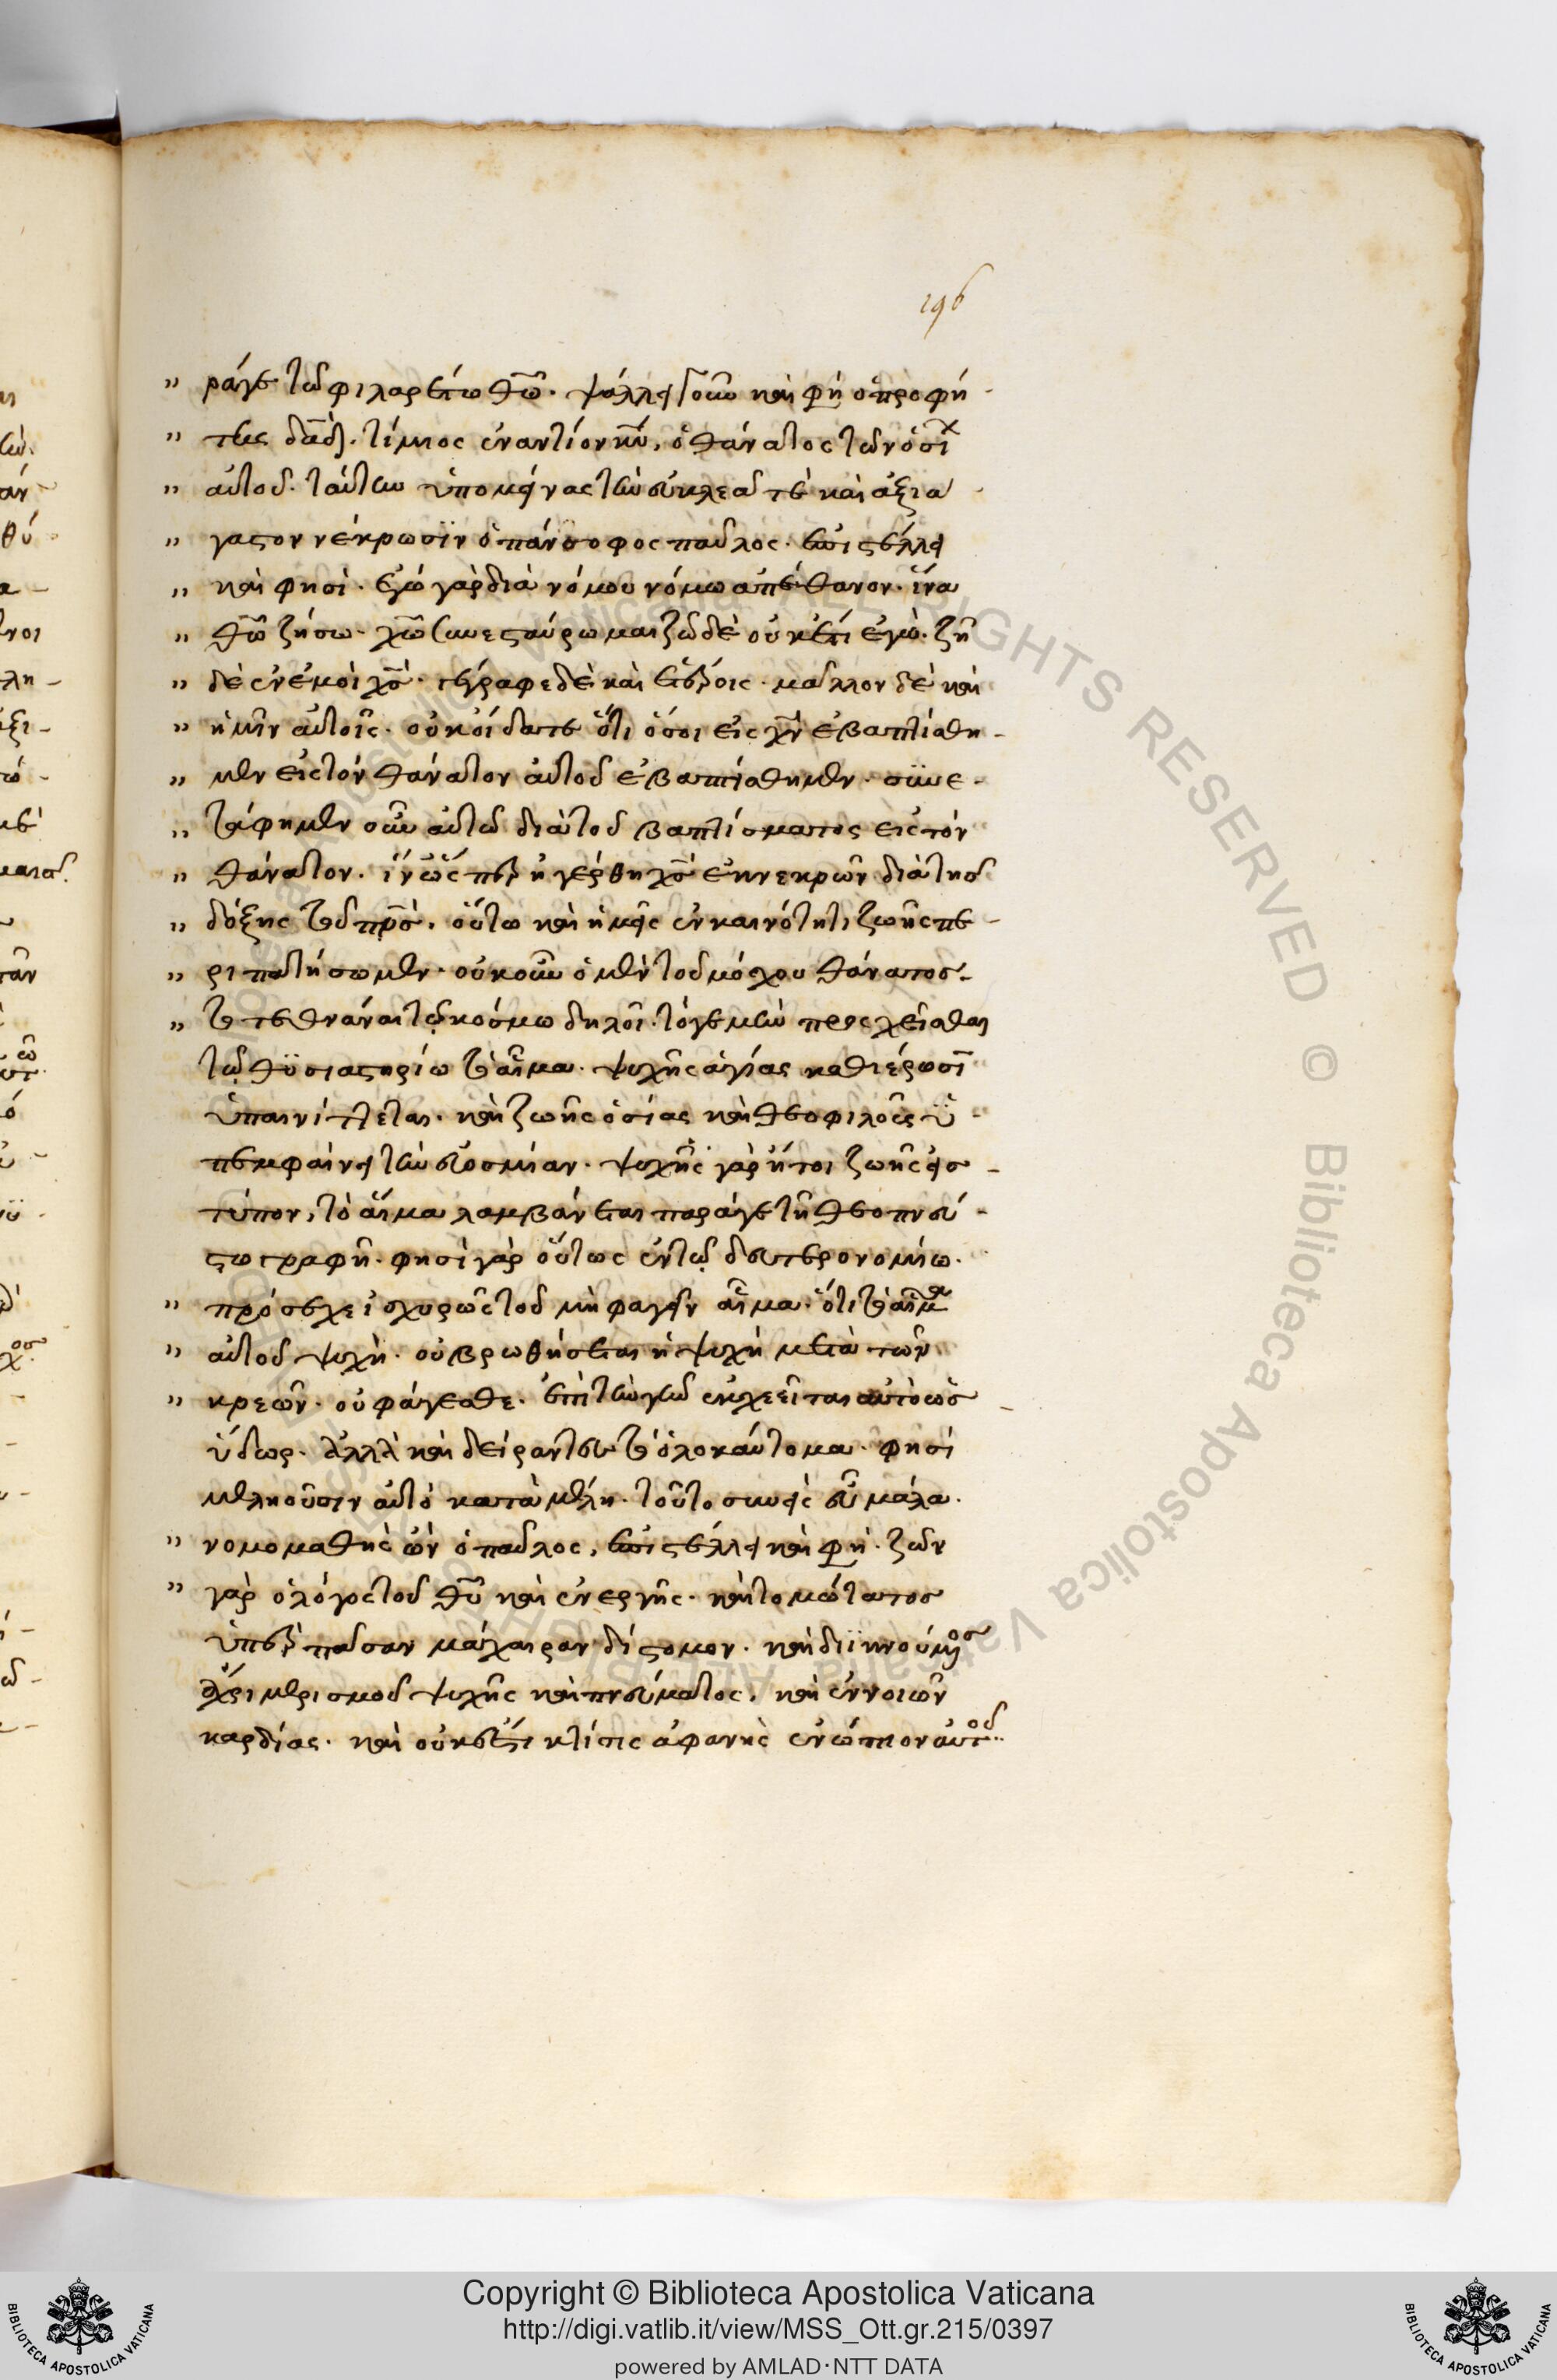 196
" ράγε τῶ φιλαρέτω θῶ. ψάλλει τοίνυν καὶ φη ὁ προφή-
" της δαδ. τίμιος ἐναντίον κυ, ὁ θάνατος τῶν ὁσί
" αὐτοῦ. ταύτην ὑπομείνας τὴν εὐκλεᾶ τε καὶ ἀξιά
" γαστον νέκρωσϊν ὁ πάνσοφος παῦλος. ἐπιστέλλει
" καὶ φησί. ἐγὼ γὰρ διὰ νόμου νόμω ἀπέθανον. ἵνα
" θῶ ζήσω. χῶ συνεσταύρωμαι ζῶ δὲ οὐκέτι ἐγώ. ζῆ
" δὲ ἐν ἐμοὶ χσ. γέγραφε δὲ καὶ ἑτέροις. μᾶλλον δὲ καὶ
" ἡμῖν αὐτοῖς. οὐκ οἴδατε ὅτι ὅσοι εἰς χν ἐβαπτίσθη-
" μεν εἰς τὸν θάνατον αὐτοῦ ἐβαπτίσθημεν. συνε-
" τάφημεν οὖν αὐτῶ διὰ τοῦ βαπτίσματος εἰς τὸν
" θάνατον. ἵν ὥσπερ ἠγέρθη χσ ἐκ νεκρῶν διὰ τησ
" δόξης τοῦ πρσ. οὕτω καὶ ἡμεῖς ἐν καινότητι ζωῆς πε-
" ριπατήσωμεν. οὐκοῦν ὁ μὲν τοῦ μόσχου θάνατοσ.
" τὸ τεθνάναι τῶ κόσμω δηλοῖ. τό γε μὴν προσχεῖσθαι
τῶ θϋσιαστηρίω τὸ αἷμα. ψυχῆς ἁγίας καθιέρωσϊ
ὑπαινίττεται. καὶ ζωῆς ὁσίας καὶ θεοφιλοῦς ὑ-
πεμφαίνει τὴν εὐοσμίαν. ψυχῆς γὰρ ἤτοι ζωῆς εἰσ
τύπον, τὸ αἷμα λαμβάνεται παρά γε τῆ θεοπνεύ-
στω γραφῆ. φησὶ γὰρ οὕτως ἐν τῶ δευτερονομίω.
" πρόσεχε ἰσχυρῶς τοῦ μὴ φαγεῖν αἷμα. ὅτι τὸ αἷμα
" αὐτοῦ ψυχή. οὐ βρωθήσεται ἡ ψυχὴ μετὰ τῶν
" κρεῶν. οὐ φάγεσθε. ἐπὶ τὴν γῆν ἐκχεεῖται αὐτὸ ὡσ
ὕδωρ. ἀλλὰ καὶ δείραντες τὸ ὁλοκαύτομα. φησί
μελιοῦσιν αὐτὸ κατὰ μέλη. τοῦτο συνεὶς εὖ μάλα.
" νομομαθὴς ὢν ὁ παῦλος, ἐπιστέλλει καὶ φη. ζῶν
" γὰρ ὁ λόγος τοῦ θυ καὶ ἐνεργής. καὶ τομώτατοσ
ὑπὲρ πᾶσαν μάχαιραν δίστομον. καὶ διϊκνούμενοσ
ἄχρι μερισμοῦ ψυχῆς καὶ πνεύματος. καὶ ἐννοιῶν
καρδίας. καὶ οὐκ ἔστι κτίσις ἀφανὴς ἐνώπιον αὐτοῦ
Copyright © Biblioteca Apostolica Vaticana
http://digi.vatlib.it/view/MSS_Ott.gr.215/0397
powered by AMLAD·NTT DATA